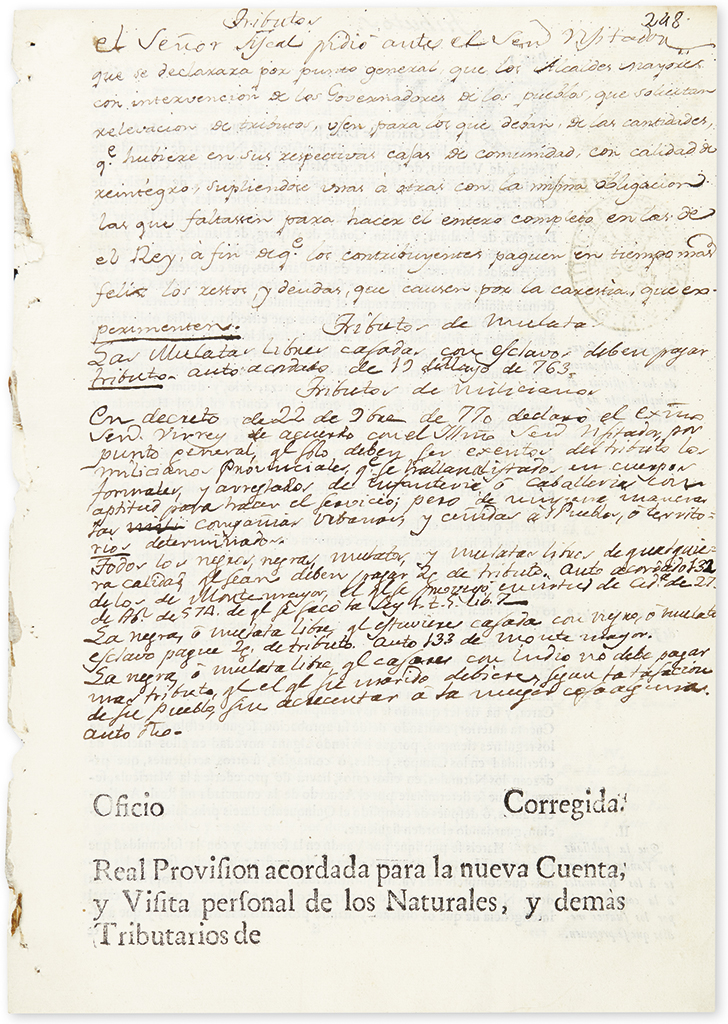 248.
Tributos
el Señor Fiscal pidió antes el Senr. Visitador
que se declarara por punto general, que los Alcaldes mayores
con intervencion de los Governadores de los pueblos, que solicitan
relevacion de tributos, usen, para los que devan, de las cantidades,
q.e hubiere en sus respectivas cajas de comunidad, con calidad de
reintegro, supliendose unas à otras con la misma obligacion
las que faltassen para hacer el entero completo en las de
el Rey, à fin de q.e los contribuyentes paguen en tiempo mas
felix los restos y deudas, que causen por la carestia, que ex-
perimenten.
Tributos de Mulata
Las Mulatas libres casadas con esclavos deben pagar
tributo. auto acordado de 19 de Mayo de 763.
Tributos de milicianos
En decreto de 22 de 9bre de 770 declaro el exmo
Senr. Virrey de acuerdo con el Illmo Senr Visitador, por
punto general, q.l solo deben ser exentos del tributo los
milicianos Provinciales, q.e se hallan alistados en cuerpos
formales, y arreglados de infanteria ò caballeria con
aptitud para hacer el servicio; pero de ninguna manera
las companias Urbanas, y ceñidas à Pueblos, ò territo-
rios determinados.
Todos los negros, negras, mulatos, y mulatas libres de qualquie-
ra calidad q.l sean deben pagar 2p. de tributo. Auto acordado 132
de los de Montemayor, el q.l se proveyo en virtud de Ced.a de 27
de Ab.l de 574. de q.l se sacó la Ley 1. t. 5. lib. 7
La negra, ò mulata libre, q.l estuviere casada con negro, ò mulato
esclavo pague 2p. de tributo. Auto 133 de monte mayor.
La negra, ò mulata libre, q.l casare con Indio no debe pagar
mas tributo, q.l el q.l su marido debiere, segun la tasacion
de su pueblo, sin acrecentar à la muger cosa alguna.
auto dho.
Oficio Corregida.
Real Provision acordada para la nueva Cuenta,
y Visita personal de los Naturales, y demàs
Tributarios de